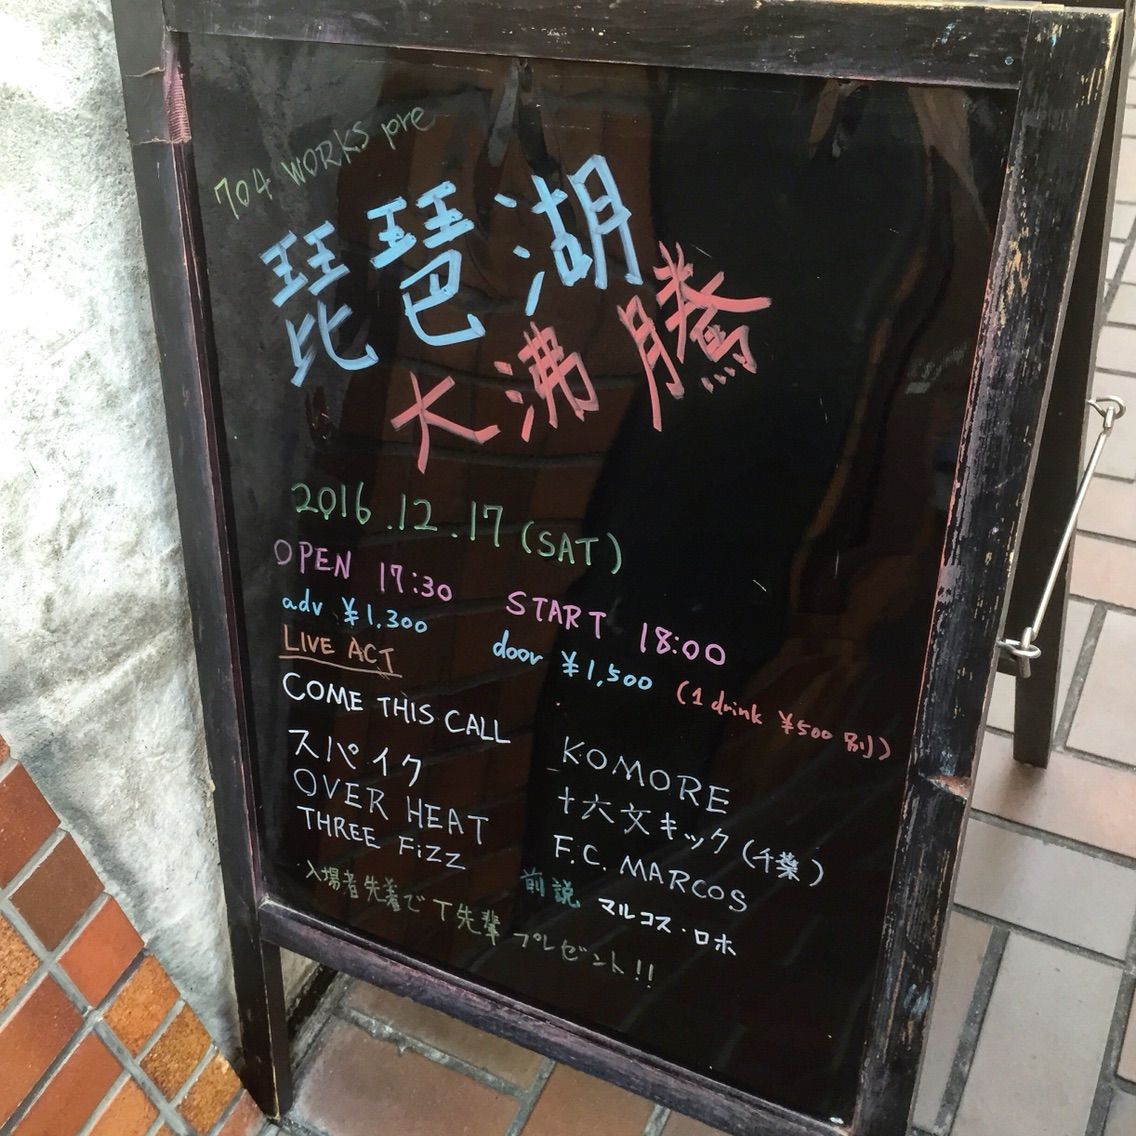 704 WORKS pre
琵琶湖
大沸騰
2016.12.17 (SAT)
OPEN 17:30 START 18:00
adv ¥1,300 door ¥1,500 (1 drink ¥500 別)
LIVE ACT
COME THIS CALL
スパイク
OVER HEAT
THREE FiZZ
KOMORE
十六文キック(千葉)
F.C. MARCOS
前説 マルコス・ロホ
入場者先着でT先輩プレゼント!!